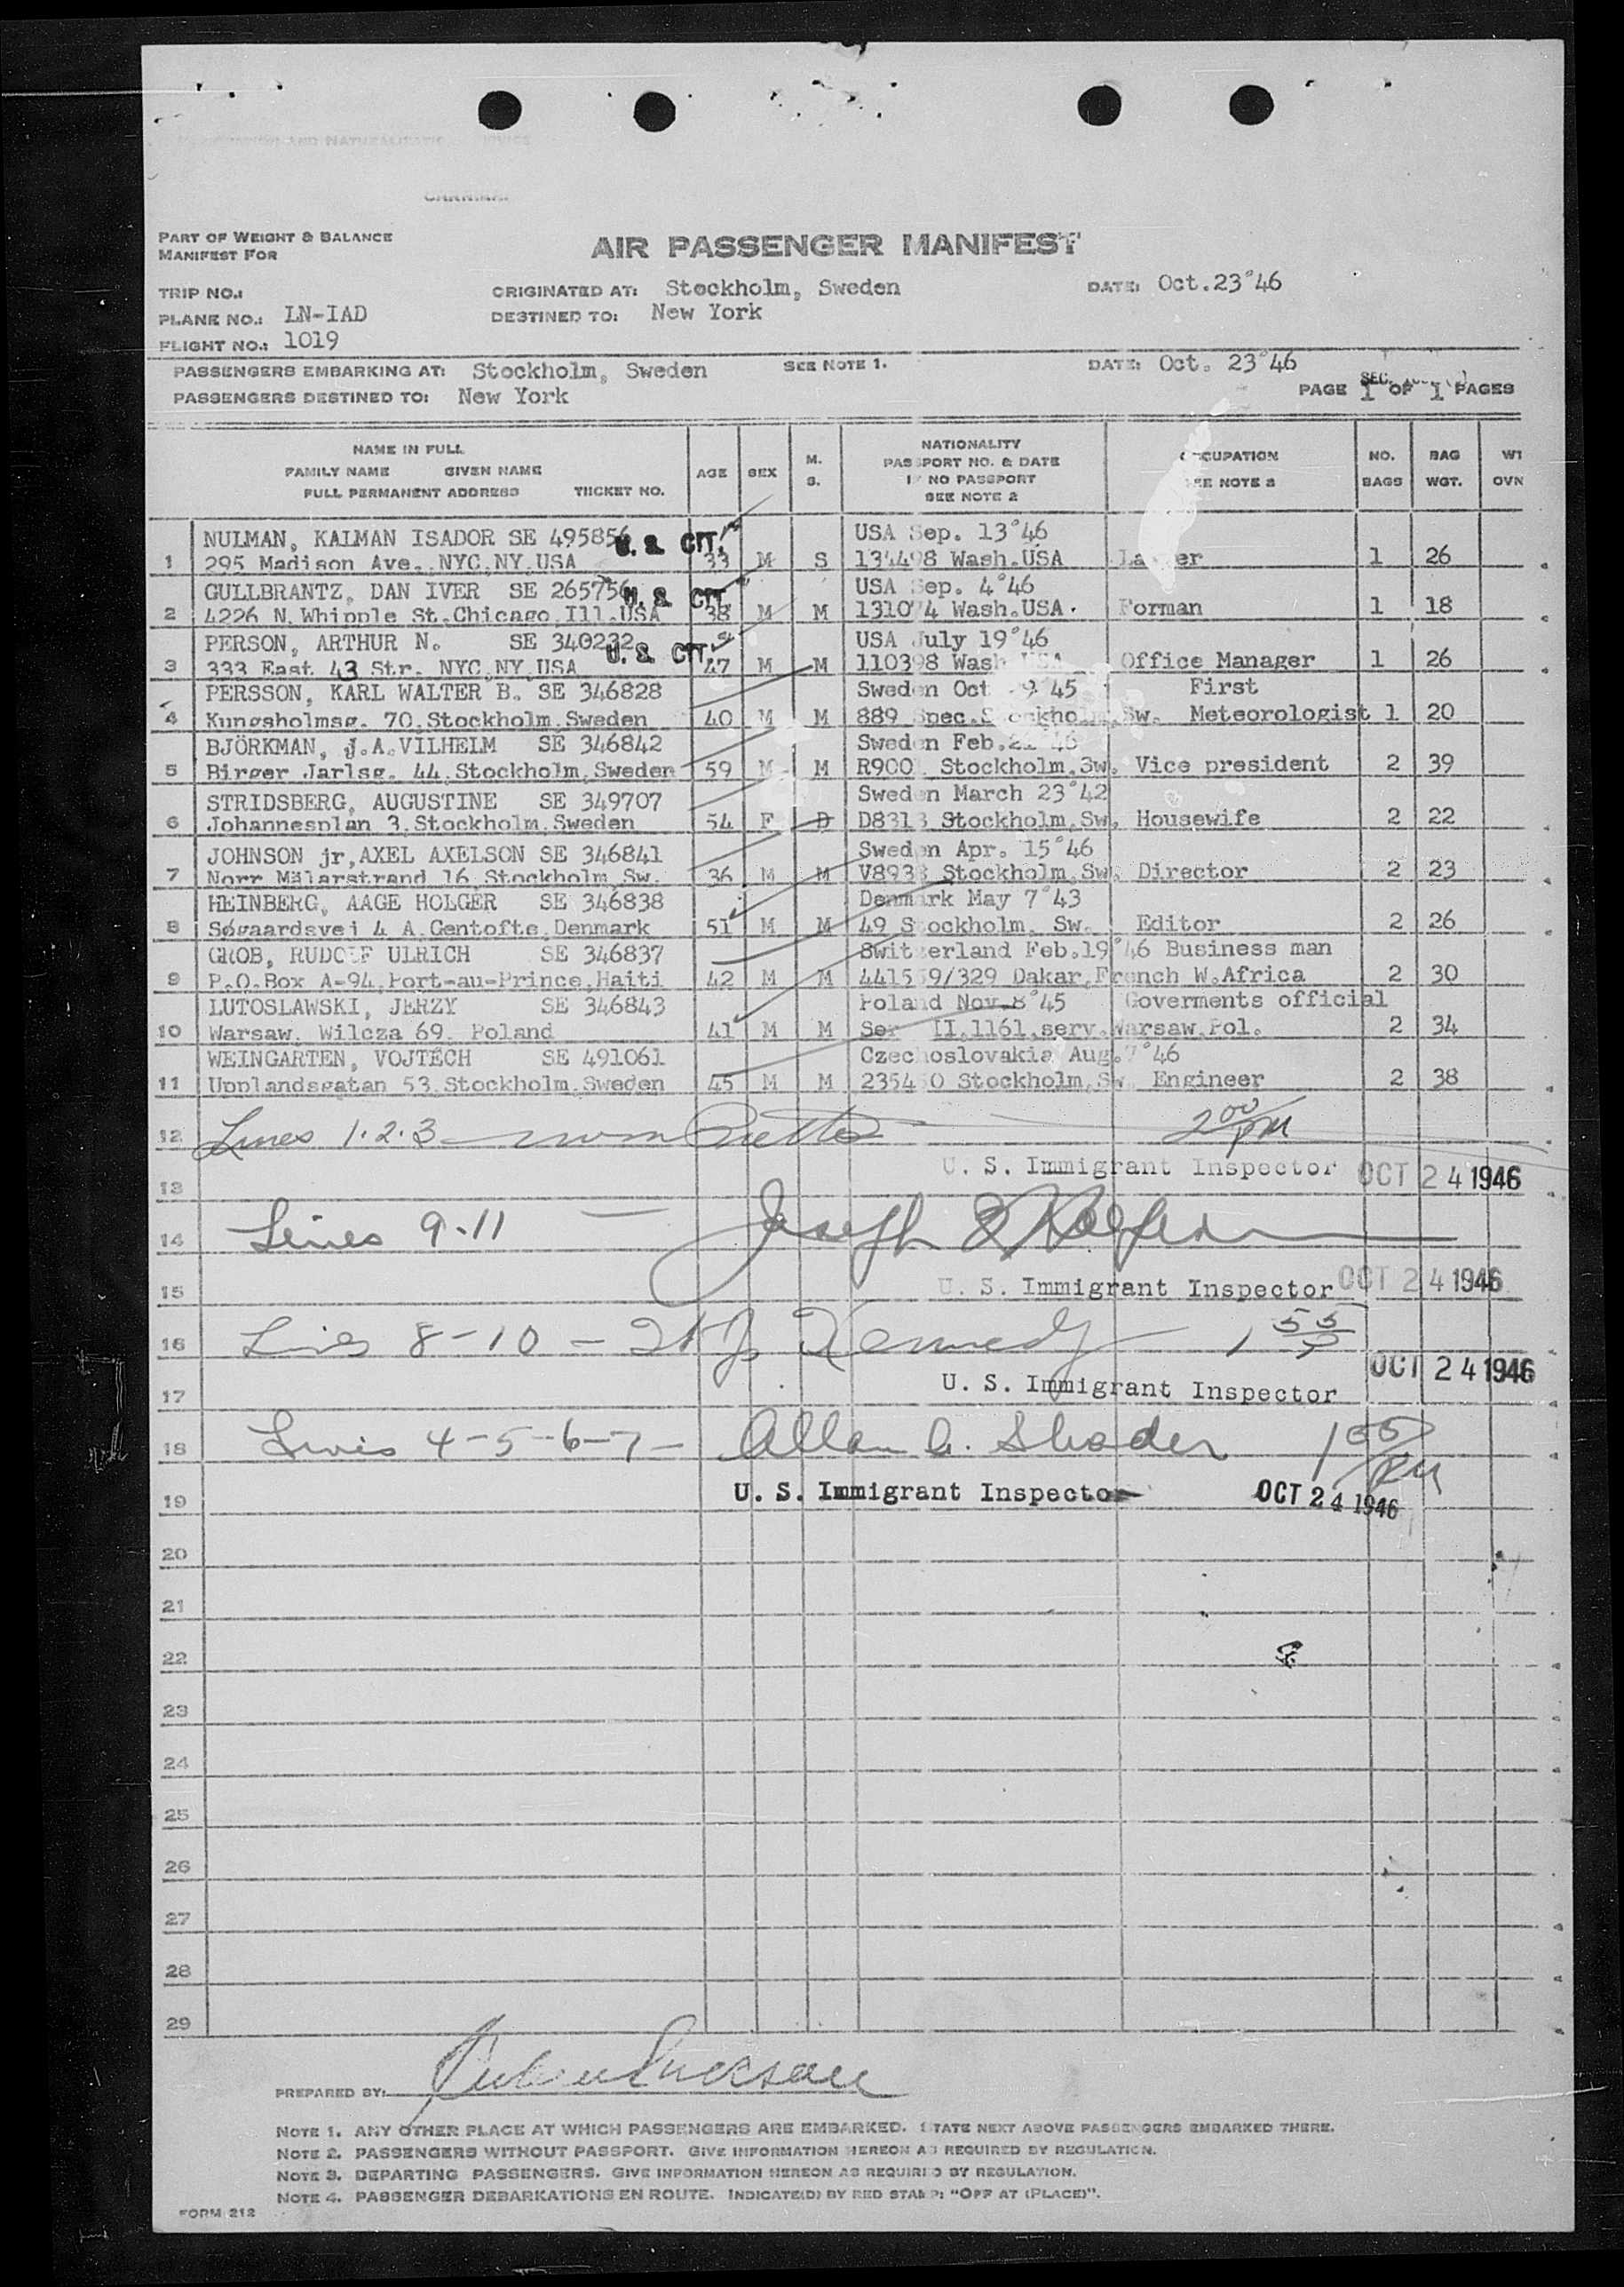 PART OF WEIGHT & BALANCE
MANIFEST FOR
AIR PASSENGER MANIFEST
TRIP NO.:
ORIGINATED AT: Stockholm, Sweden
DATE: Oct.23°46
PLANE NO.: LN-IAD
DESTINED TO: New York
FLIGHT NO.: 1019
PASSENGERS EMBARKING AT: Stockholm, Sweden
SEE NOTE 1.
DATE: Oct. 23°46
PASSENGERS DESTINED TO: New York
PAGE 1 OF 1 PAGES
NAME IN FULL
FAMILY NAME GIVEN NAME
FULL PERMANENT ADDRESS TICKET NO.
AGE
SEX
M.
S.
NATIONALITY
PASSPORT NO. & DATE
IF NO PASSPORT
SEE NOTE 2
OCCUPATION
SEE NOTE 3
NO.
BAGS
BAG
WGT.
WT
OVN
NULMAN, KALMAN ISADOR SE 495856 U. S. CIT. USA Sep. 13°46
1 295 Madison Ave. NYC,NY,USA 33 M S 134498 Wash.USA 1 26
GULLBRANTZ, DAN IVER SE 265756 U. S. CIT USA Sep. 4°46
2 4226 N.Whipple St.Chicago,Ill.USA 38 M M 131074 Wash.USA. Forman 1 18
PERSON, ARTHUR N. SE 340232 U. S. CIT. USA July 19°46
3 333 East 43 Str. NYC,NY,USA 47 M M 110398 Wash USA Office Manager 1 26
PERSSON, KARL WALTER B. SE 346828 Sweden Oct 45 First
4 Kungsholmsg. 70.Stockholm.Sweden 40 M M 889 Spec.Stockholm,Sw. Meteorologist 1 20
BJÖRKMAN, J.A.VILHELM SE 346842 Sweden Feb.21 46
5 Birger Jarlsg. 44.Stockholm,Sweden 59 M M R900 Stockholm.Sw. Vice president 2 39
STRIDSBERG, AUGUSTINE SE 349707 Sweden March 23°42
6 Johannesplan 3.Stockholm.Sweden 54 F D D8313 Stockholm,Sw. Housewife 2 22
JOHNSON jr,AXEL AXELSON SE 346841 Sweden Apr. 15°46
7 Norr Mälarstrand 16.Stockholm.Sw. 36 M M V8933 Stockholm,Sw. Director 2 23
HEINBERG, AAGE HOLGER SE 346838 Denmark May 7°43
8 Søgaardsvei 4 A.Gentofte,Denmark 51 M M 49 Stockholm. Sw. Editor 2 26
GROB, RUDOLF ULRICH SE 346837 Switzerland Feb.19°46 Business man
9 P.O.Box A-94,Port-au-Prince,Haiti 42 M M 441559/329 Dakar,French W.Africa 2 30
LUTOSLAWSKI, JERZY SE 346843 Poland Nov.8°45 Goverments official
10 Warsaw. Wilcza 69. Poland 41 M M Ser II.1161.serv.Warsaw.Pol. 2 34
WEINGARTEN, VOJTĚCH SE 491061 Czechoslovakia Aug.7°46
11 Upplandsgatan 53.Stockholm.Sweden 45 M M 235450 Stockholm,Sw. Engineer 2 38
12 Lines 1.2.3 2 00 PM
U. S. Immigrant Inspector OCT 24 1946
13
14 Lines 9-11 Joseph
15 U. S. Immigrant Inspector OCT 24 1946
16 Lines 8-10 - Kennedy 1 55
U. S. Immigrant Inspector OCT 24 1946
17
18 Lines 4-5-6-7- Allan G. Shader 1 55 PM
19 U. S. Immigrant Inspector OCT 24 1946
20
21
22
23
24
25
26
27
28
29
PREPARED BY:
NOTE 1. ANY OTHER PLACE AT WHICH PASSENGERS ARE EMBARKED. STATE NEXT ABOVE PASSENGERS EMBARKED THERE.
NOTE 2. PASSENGERS WITHOUT PASSPORT. GIVE INFORMATION HEREON AS REQUIRED BY REGULATION.
NOTE 3. DEPARTING PASSENGERS. GIVE INFORMATION HEREON AS REQUIRED BY REGULATION.
NOTE 4. PASSENGER DEBARKATIONS EN ROUTE. INDICATE(D) BY RED STAMP: "OFF AT (PLACE)".
FORM 212